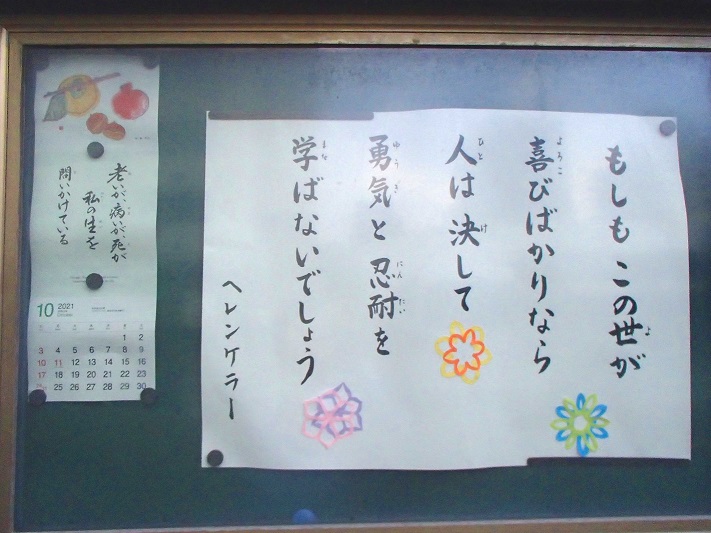 もしもこの世が
喜びばかりなら
人は決して
勇気と忍耐を
学ばないでしょう
ヘレンケラー
老いが、病いが、死が
私の生を
問いかけている
10 2021
1 2
3 4 5 6 7 8 9
10 11 12 13 14 15 16
17 18 19 20 21 22 23
25 26 27 28 29 30